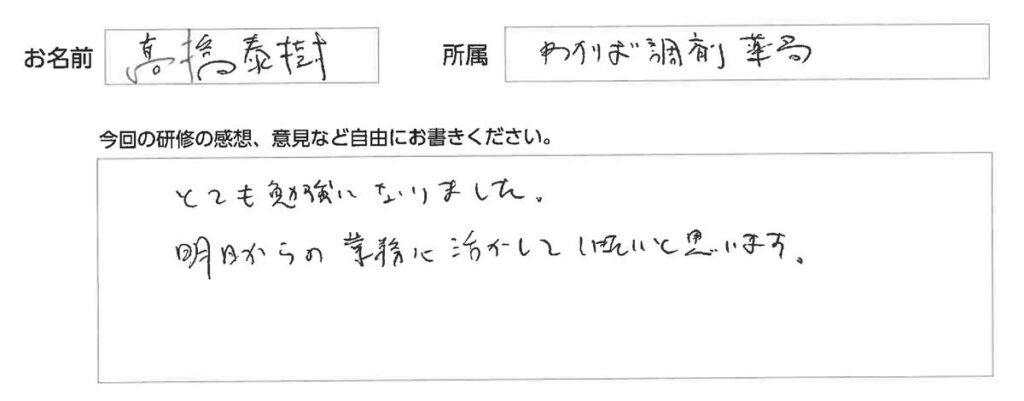 お名前 高橋泰樹 所属 わかば調剤薬局
今回の研修の感想、意見など自由にお書きください。
とても勉強になりました。
明日からの業務に活かして と思います。